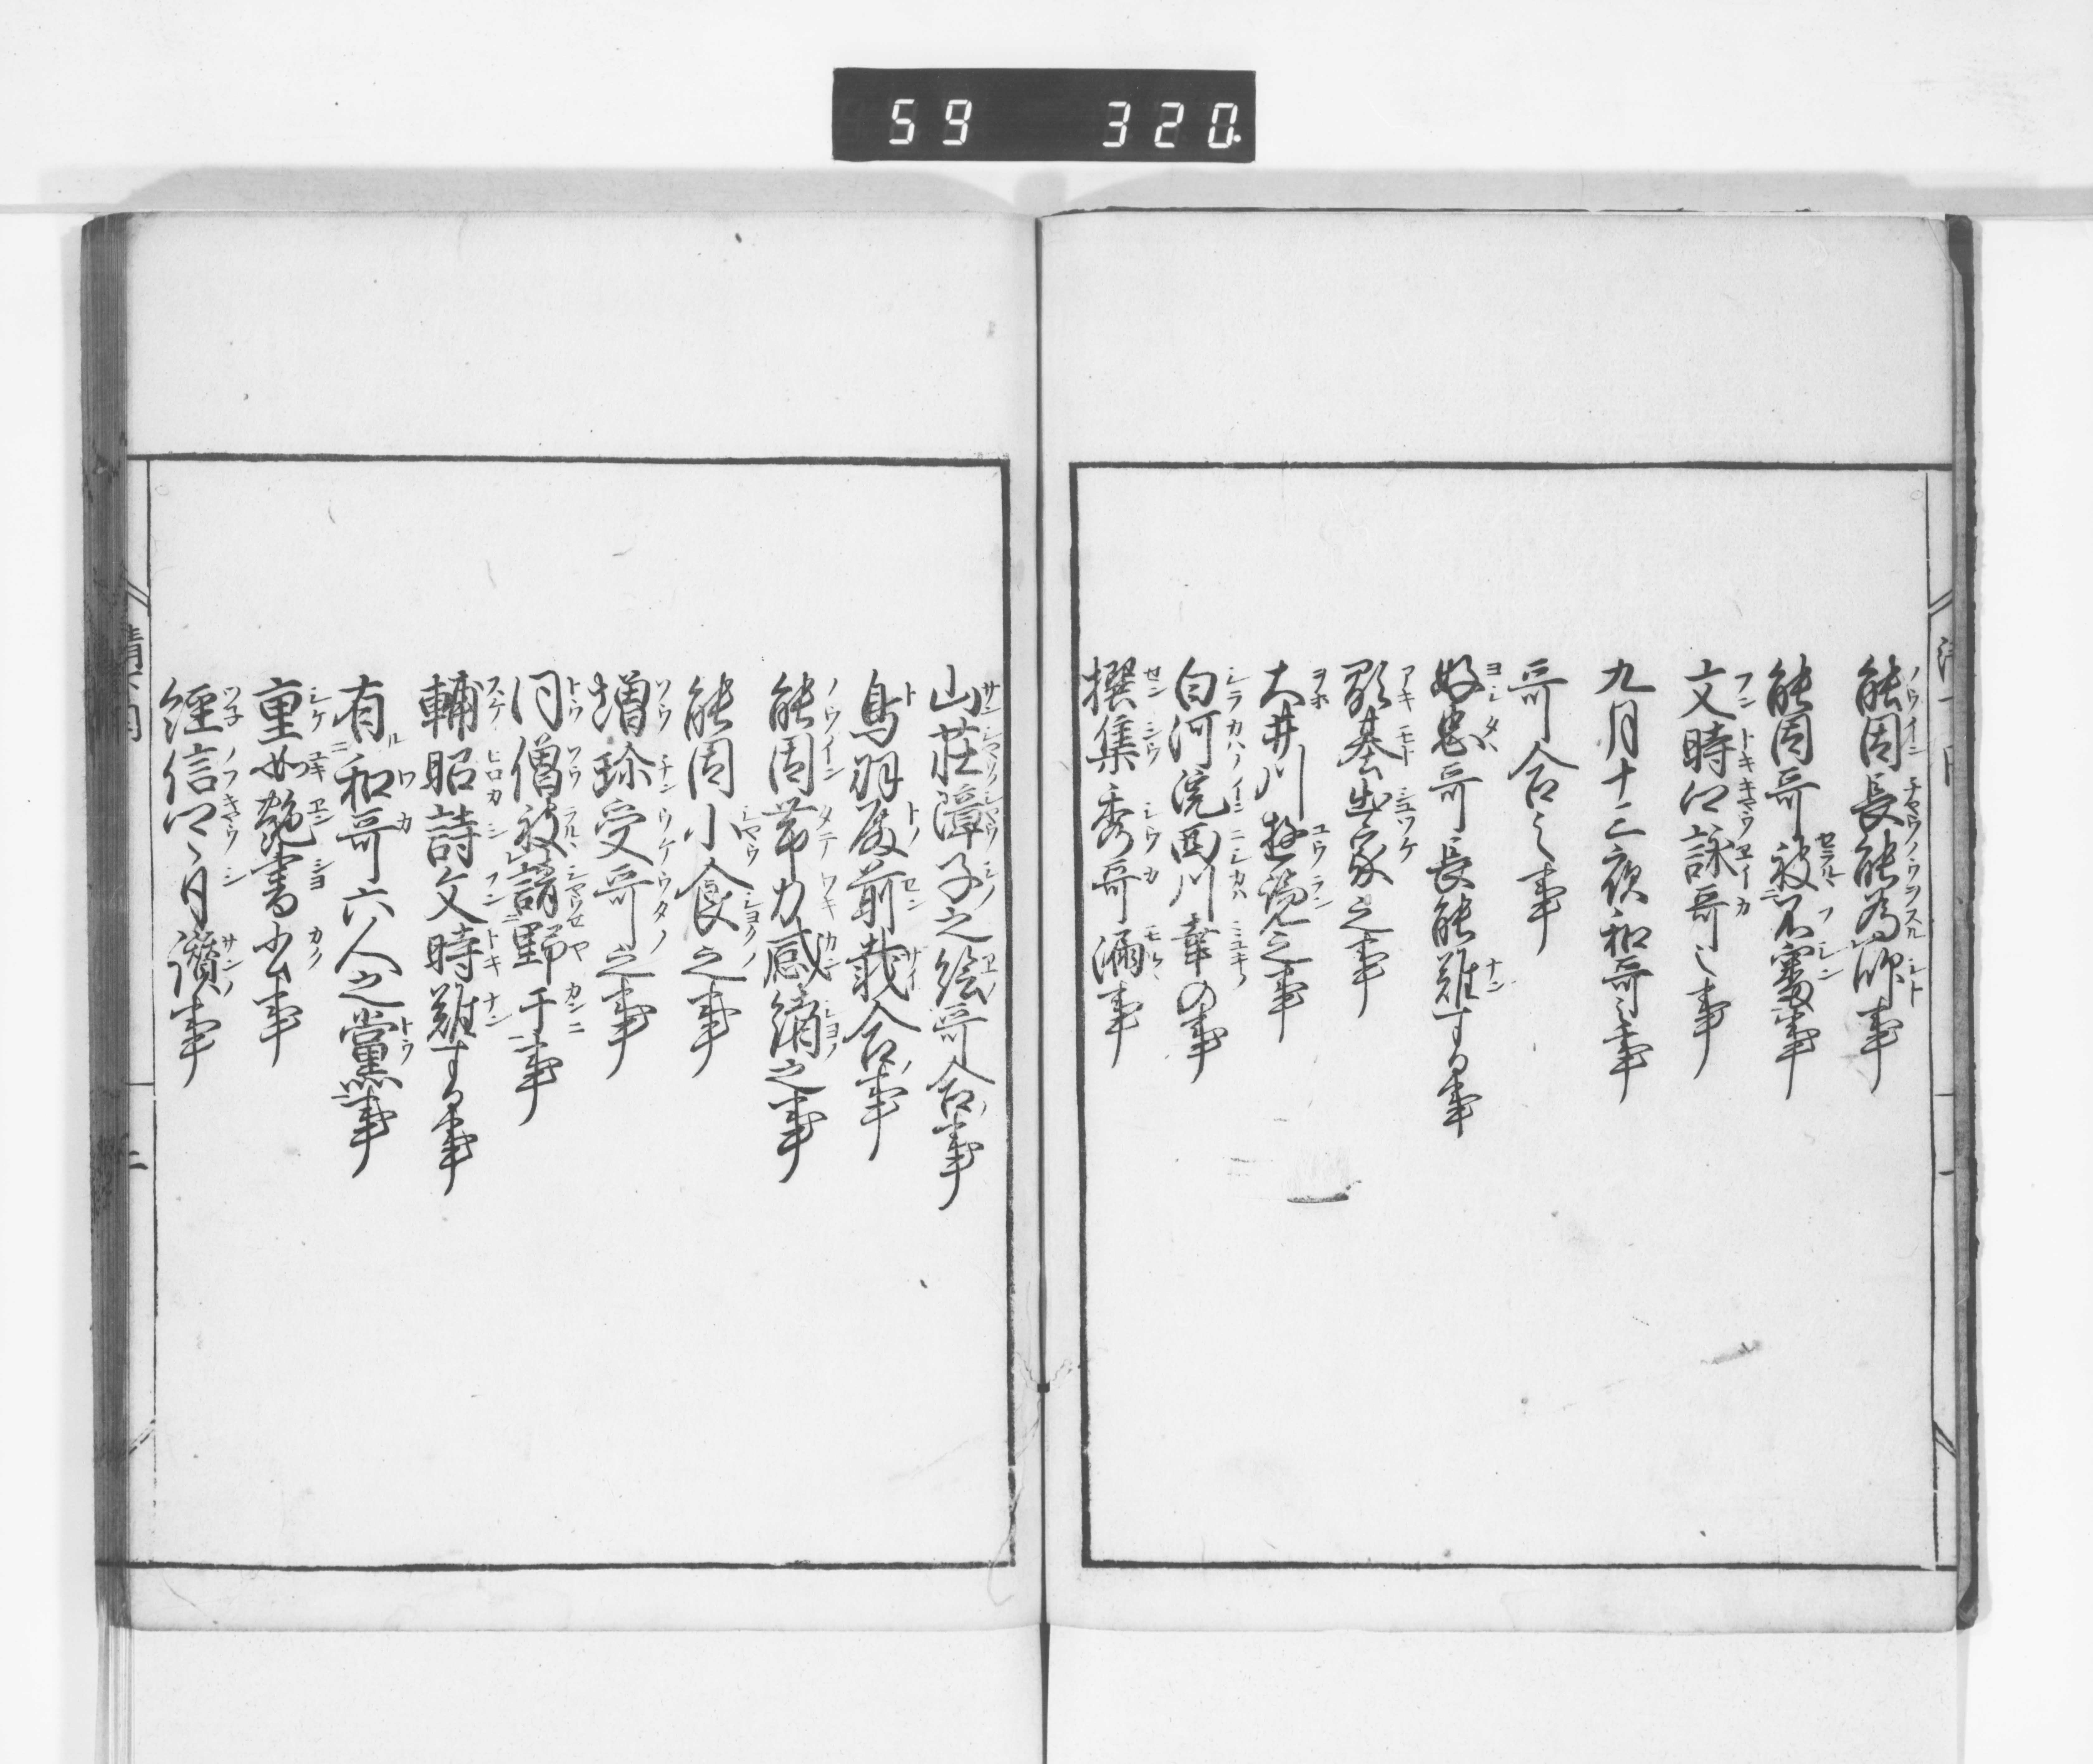 59 320.
能因長能為師事
能因哥被不審事
文時卿詠哥之事
九月十三夜和哥之事
哥合之事
好忠哥長能難する事
顕基出家之事
大井川遊覧之事
白河院西川幸の事
撰集秀哥漏事
山荘障子之絵哥合事
鳥羽殿前栽合事
能因帯刀感緒之事
能因小食之事
増珍受哥之事
同僧被請野干事
輔昭詩文時難する事
有和哥六人之黨事
重如艶書書事
経信卿自讃事